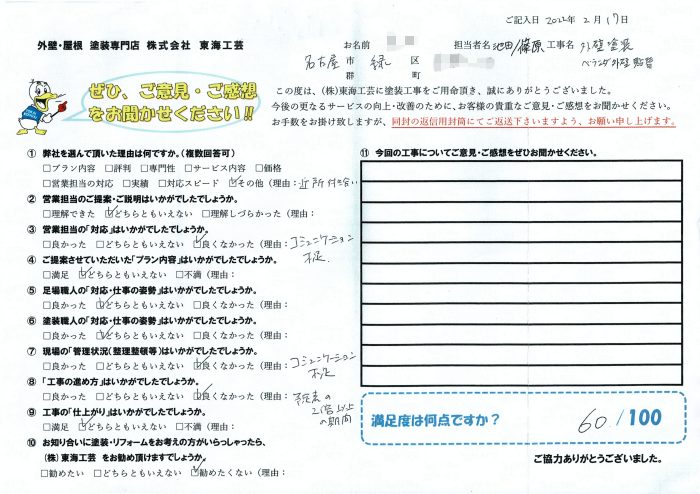 ご記入日 2022年 2月 17日
外壁・屋根 塗装専門店 株式会社 東海工芸
お名前 担当者名 池田/篠原 工事名 外壁塗装
名古屋 市 緑 区 ベランダ外壁
郡 町
ぜひ、ご意見・ご感想
をお聞かせください!!
この度は、(株)東海工芸に塗装工事をご用命頂き、誠にありがとうございました。
今後の更なるサービスの向上・改善のために、お客様の貴重なご意見・ご感想をお聞かせください。
お手数をお掛け致しますが、同封の返信用封筒にてご返送下さいますよう、お願い申し上げます。
① 弊社を選んで頂いた理由は何ですか。(複数回答可)
□プラン内容 □評判 □専門性 □サービス内容 □価格
□営業担当の対応 □実績 □対応スピード ☑その他(理由:近所付き合い
② 営業担当のご提案・ご説明はいかがでしたでしょうか。
□理解できた ☑どちらともいえない □理解しづらかった(理由:
③ 営業担当の「対応」はいかがでしたでしょうか。
□良かった □どちらともいえない ☑良くなかった(理由:コミュニケーション
不足.
④ ご提案させていただいた「プラン内容」はいかがでしたでしょうか。
□満足 ☑どちらともいえない □不満(理由:
⑤ 足場職人の「対応・仕事の姿勢」はいかがでしたでしょうか。
□良かった ☑どちらともいえない □良くなかった(理由:
⑥ 塗装職人の「対応・仕事の姿勢」はいかがでしたでしょうか。
□良かった ☑どちらともいえない □良くなかった(理由:
⑦ 現場の「管理状況(整理整頓等)はいかがでしたでしょうか。
□良かった □どちらともいえない ☑良くなかった(理由:コミュニケーション
不足
⑧ 「工事の進め方」はいかがでしたでしょうか。
□良かった □どちらともいえない ☑良くなかった(理由:予定の
2倍以上
の期間
⑨ 工事の「仕上がり」はいかがでしたでしょうか。
□満足 ☑どちらともいえない □不満(理由:
⑩ お知り合いに塗装・リフォームをお考えの方がいらっしゃったら、
(株)東海工芸 をお勧め頂けますでしょうか。
□勧めたい □どちらともいえない ☑勧めたくない(理由:
⑪ 今回の工事についてご意見・ご感想をぜひお聞かせください。
満足度は何点ですか? 60/100
ご協力ありがとうございました。